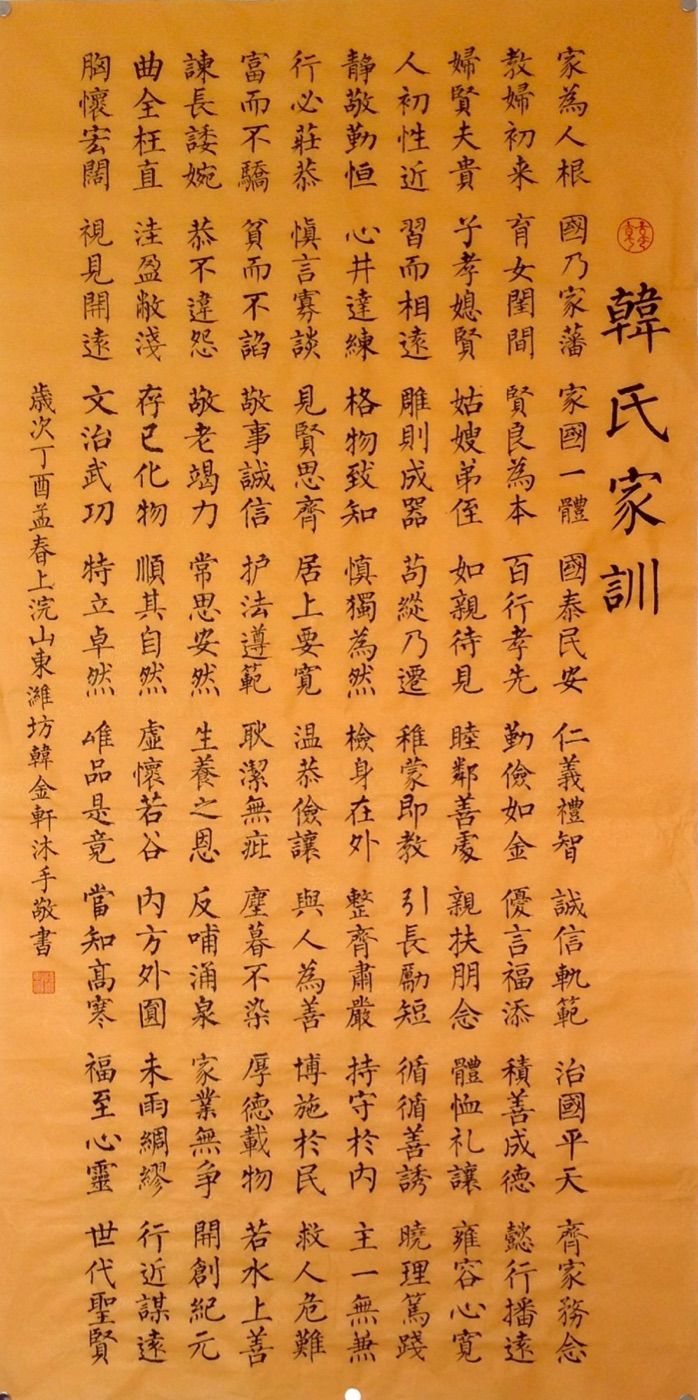 韓氏家訓
家為人根 國乃家藩 家國一體 國泰民安 仁義禮智 誠信軌範 治國平天 齊家務念
教婦初来 育女閨間 賢良為本 百行孝先 勤儉如金 優言福添 積善成德 懿行播遠
婦賢夫貴 子孝媳賢 姑嫂弟侄 如親待見 睦鄰善處 親扶朋念 體恤礼讓 雍容心寬
人初性近 習而相遠 雕則成器 苟縱乃遷 稚蒙即教 引長勵短 循循善誘 曉理篤踐
静敬勤恒 心井達練 格物致知 慎獨為然 檢身在外 整齊肅嚴 持守於内 主一無兼
行必莊恭 慎言寡談 見賢思齊 居上要寬 温恭儉讓 與人為善 博施於民 救人危難
富而不驕 貧而不諂 敬事誠信 护法遵範 耿潔無疵 塵暮不染 厚德載物 若水上善
諫長諉婉 恭不違怨 敬老竭力 常思安然 生養之恩 反哺涌泉 家業無争 開創紀元
曲全枉直 洼盈敝淺 存已化物 順其自然 虚懷若谷 内方外圓 未雨綢繆 行近謀遠
胸懷宏闊 視見開遠 文治武功 特立卓然 唯品是竟 當知高寒 福至心靈 世代聖賢
歲次丁酉孟春上浣山東濰坊韓金軒沐手敬書